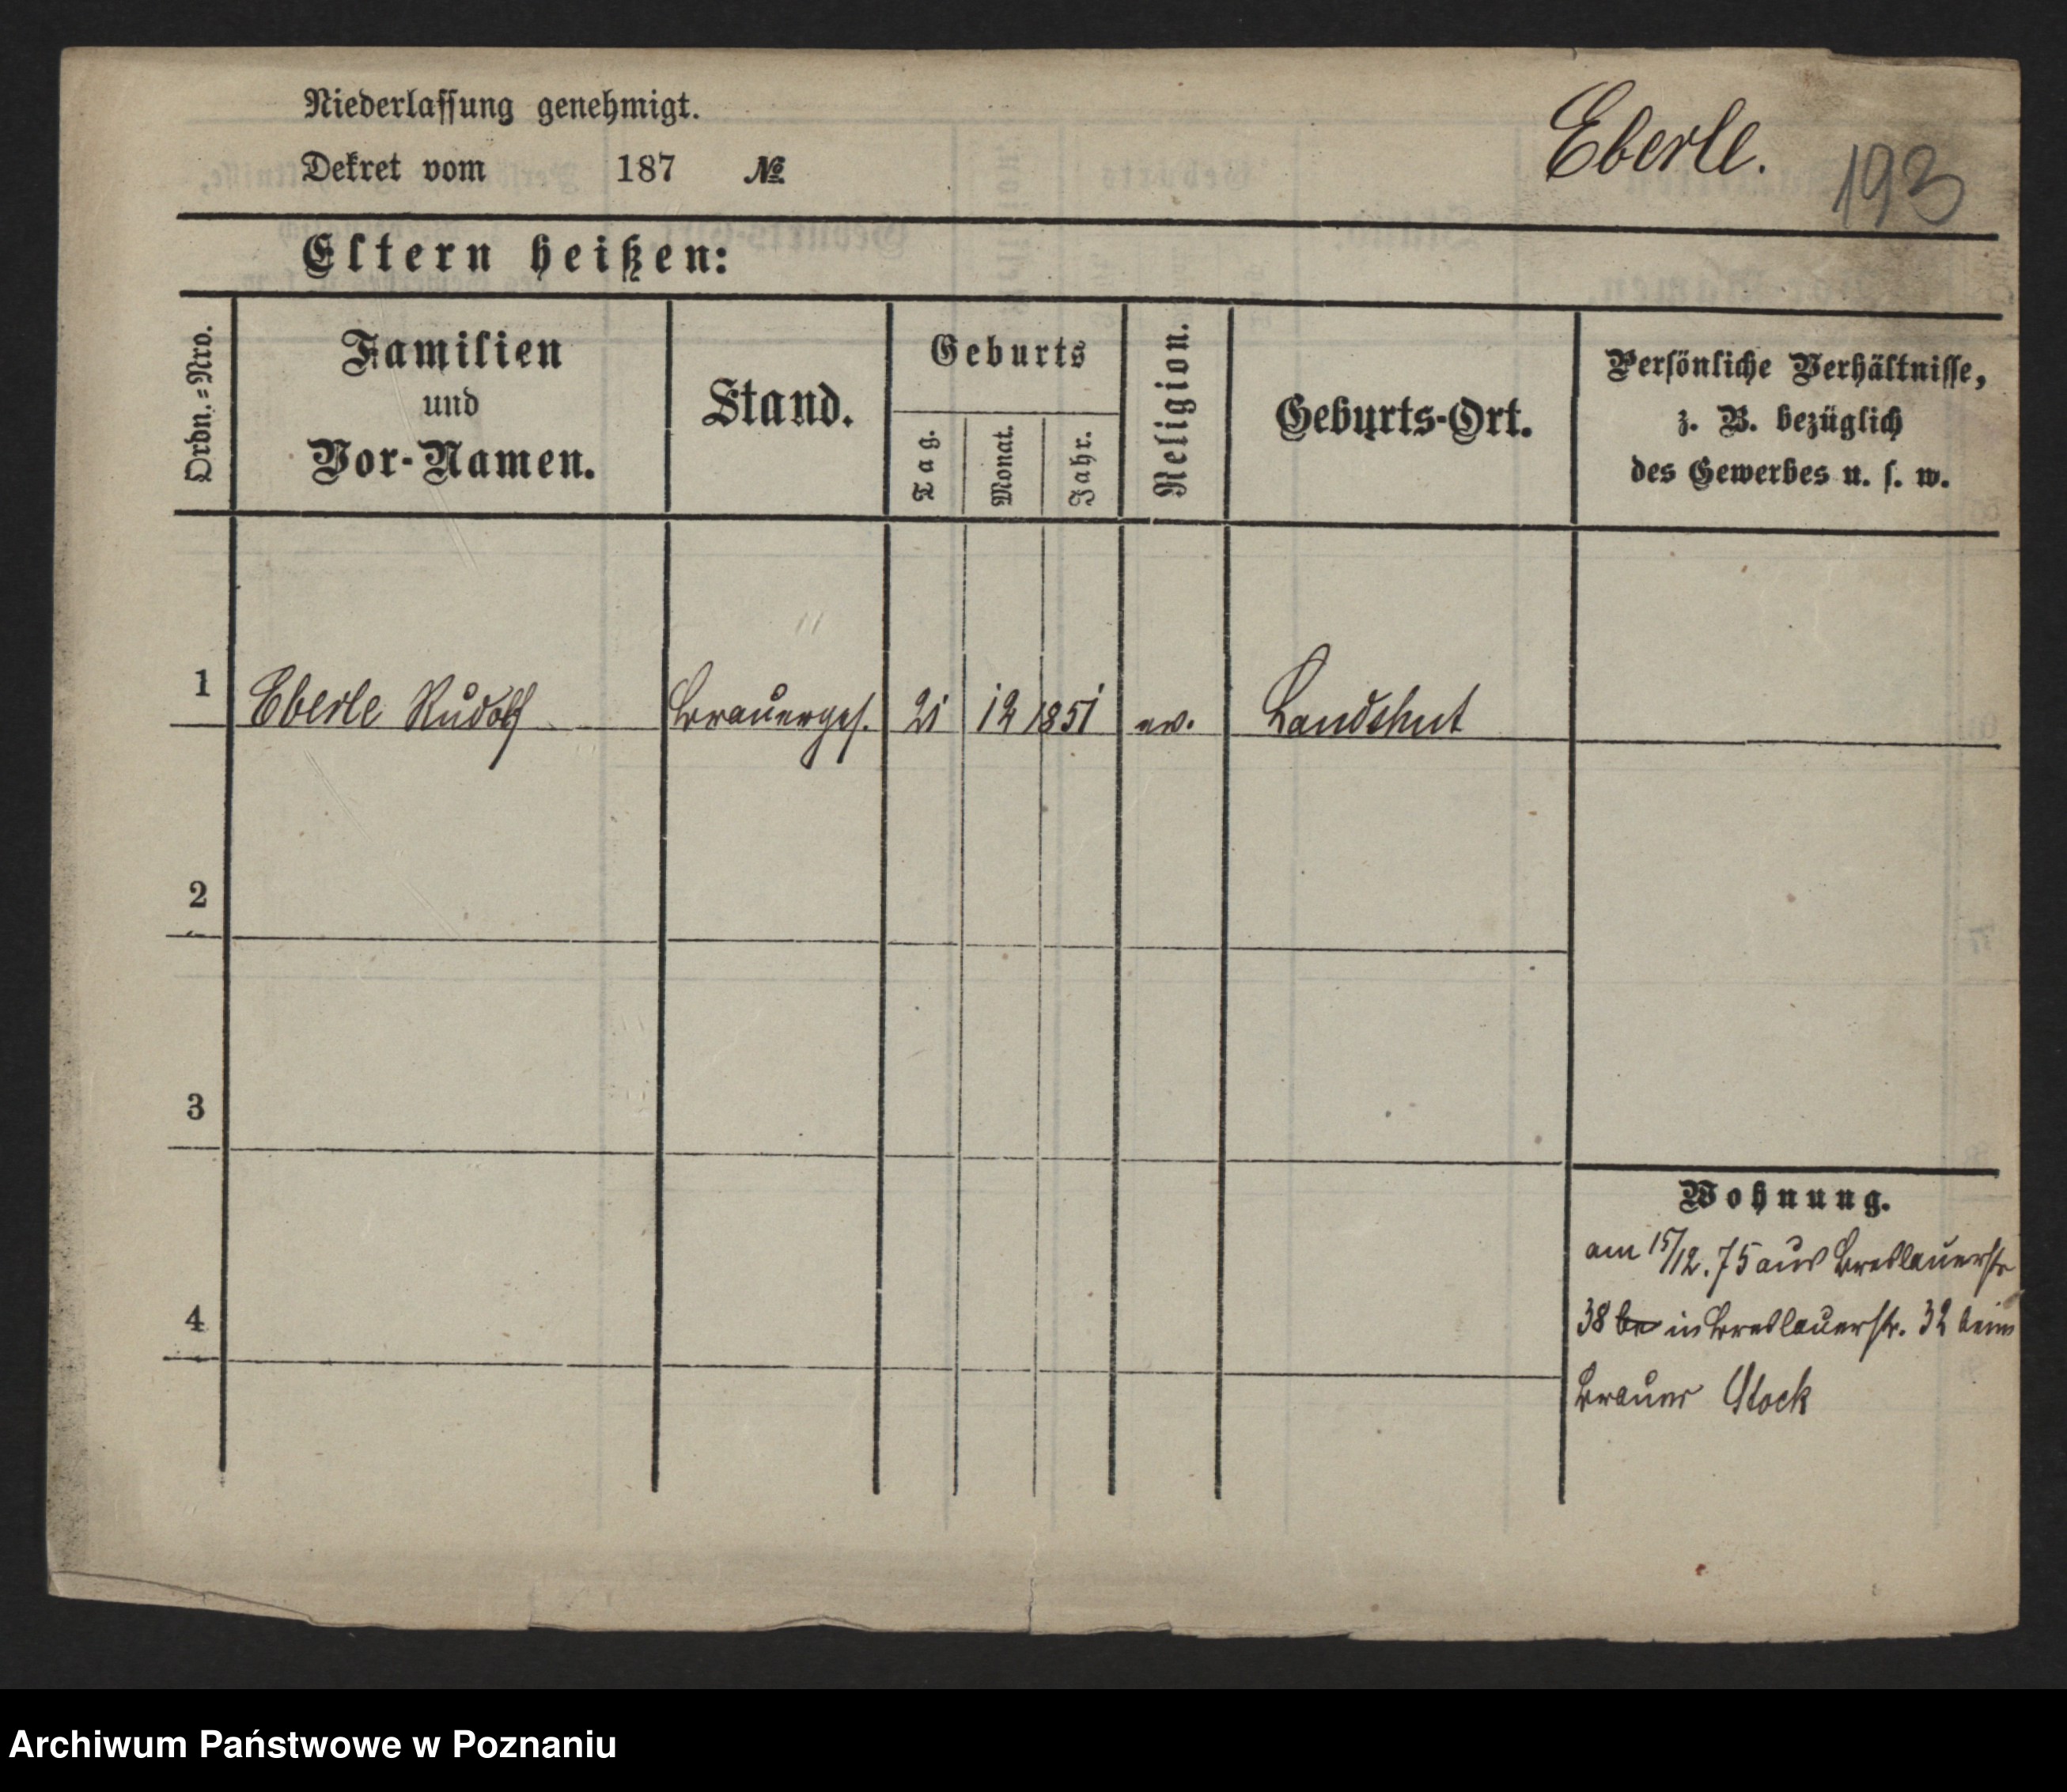 Niederlassung genehmigt.
Eberle.
193
Dekret vom 187 №
Eltern heißen:
Ordn.=Nro.
Familien
und
Vor-Namen.
Stand.
Geburts
Tag.
Monat.
Jahr.
Religion.
Geburts-Ort.
Persönliche Verhältnisse,
z. B. bezüglich
des Gewerbes u. s. w.
1 Eberle Rudolf Brauerges. 21 12 1851 ev. Landshut
2
3
4
Wohnung.
am 15/12. 75 aus Breslauerstr
38 be in Breslauerstr. 32 beim
Brauer Stock
Archiwum Państwowe w Poznaniu